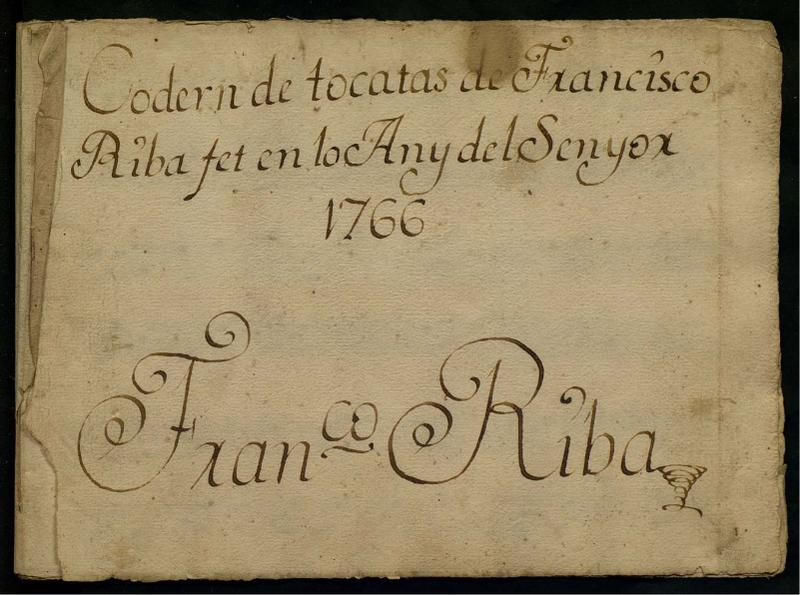 Codern de tocatas de Francisco
Riba fet en lo Any del Senyor
1766
Fran.co Riba